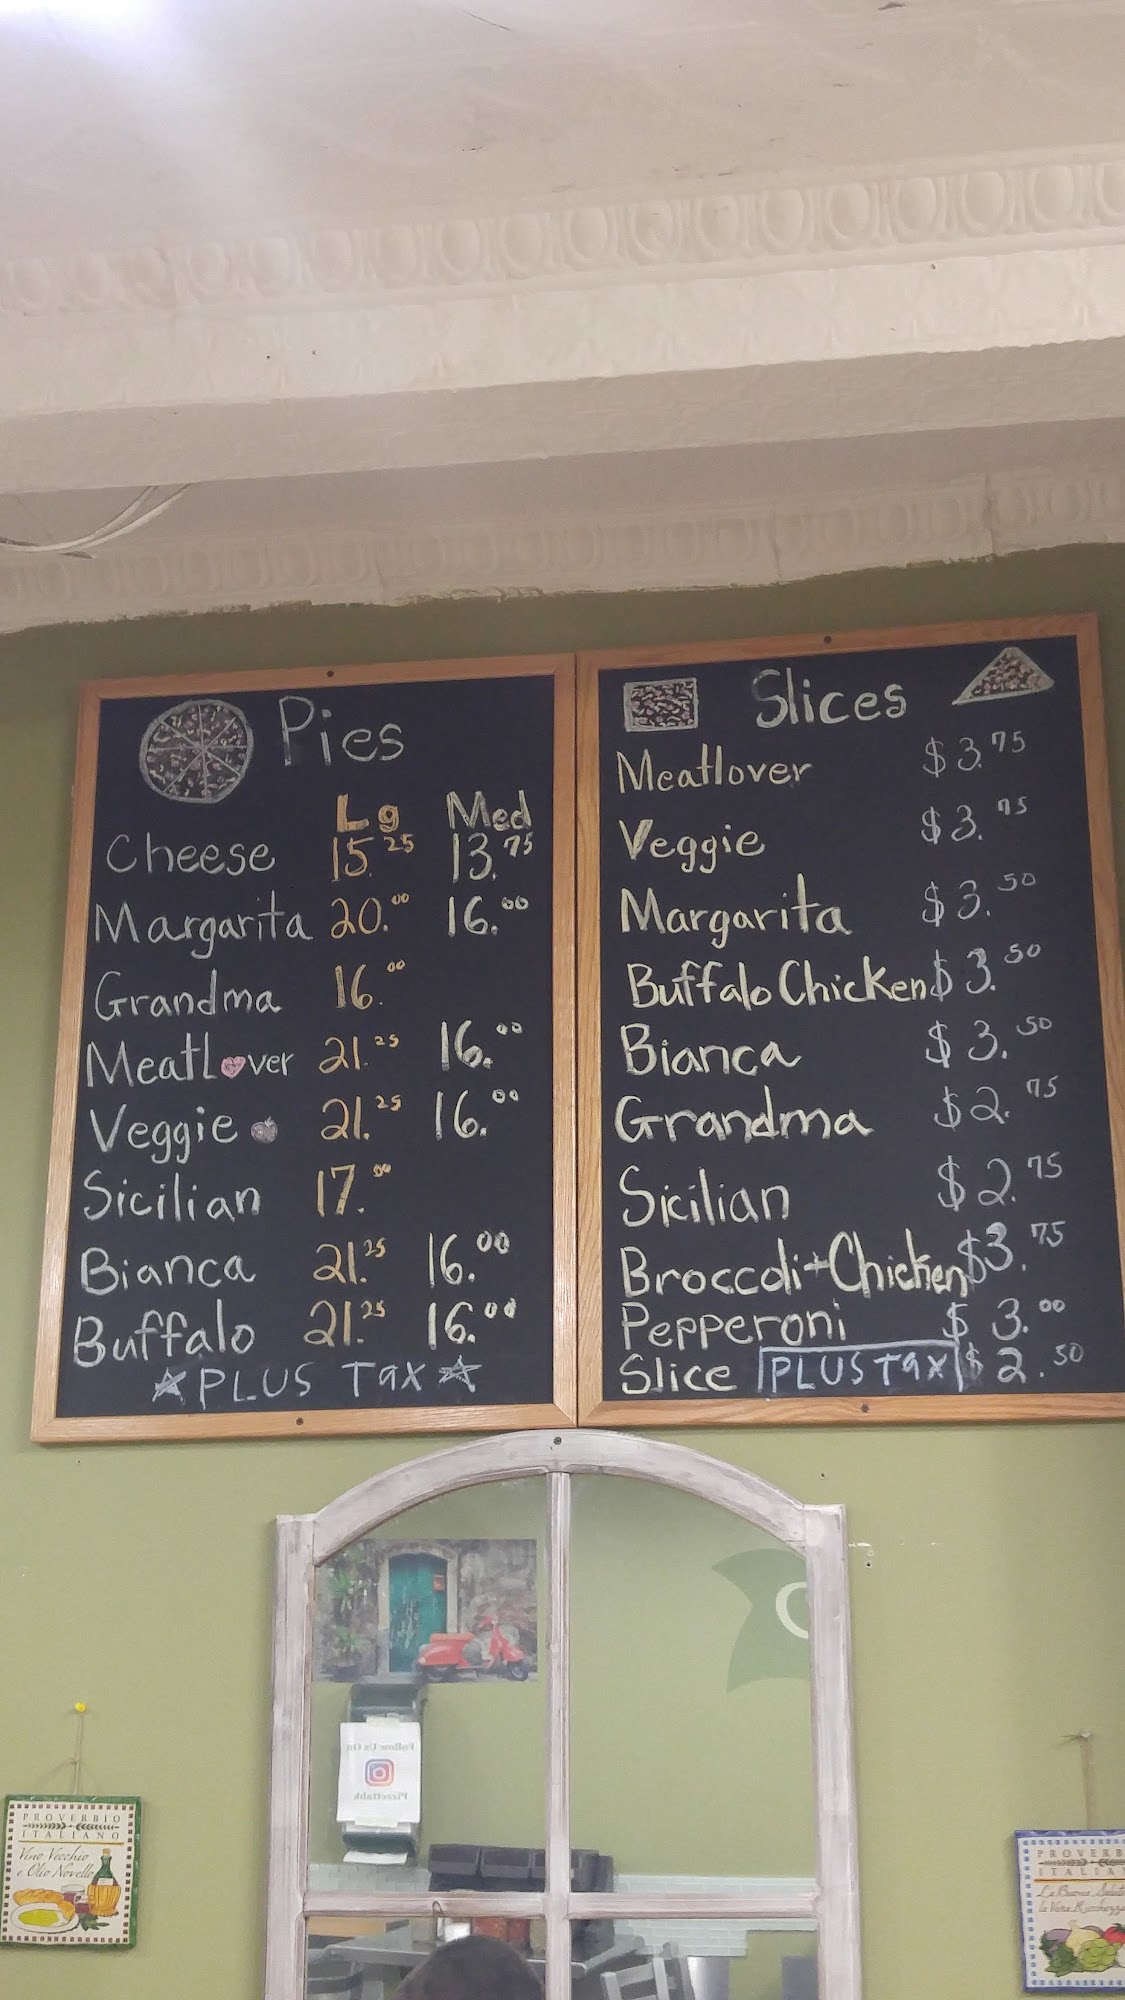 Pies
Lg Med
Cheese 15.25 13.75
Margarita 20.00 16.00
Grandma 16.00
MeatLover 21.25 16.00
Veggie 21.25 16.00
Sicilian 17.00
Bianca 21.25 16.00
Buffalo 21.25 16.00
PLUS Tax
Slices
Meatlover $3.75
Veggie $3.75
Margarita $3.50
Buffalo Chicken $3.50
Bianca $3.50
Grandma $2.75
Sicilian $2.75
Broccoli + Chicken $3.75
Pepperoni $3.00
Slice PLUS Tax $2.50
Follow Us On
Pizzettabk
PROVERBIO
ITALIANO
Vino Vecchio
e Olio Novello
PROVERB
ITALIA
La Buona